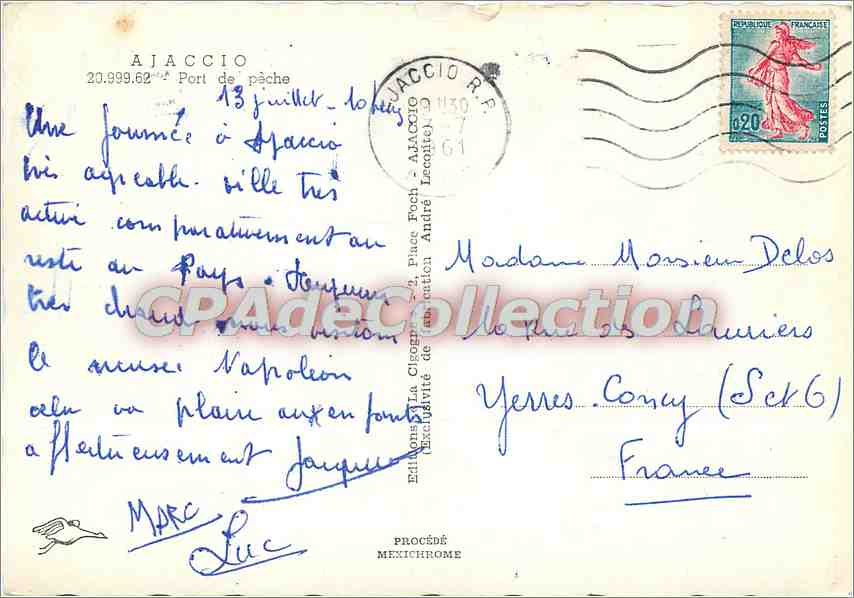 AJACCIO
20.999.62 Port de pêche
13 juillet - 10 heures
Une journée à Ajaccio
très agréable. ville très
active comparativement au
reste du Pays. Toujours
très chaud nous visitons
le musée Napoléon
cela va plaire aux enfants
affectueusement Jacques
MARC
Luc
Editions "La Cigogne" - 2, Place Foch - AJACCIO
(Exclusivité de fabrication André Leconte)
PROCÉDÉ
MEXICHROME
AJACCIO R.P.
1961
REPUBLIQUE FRANÇAISE
0,20
POSTES
Madame Monsieur Delos
10 Rue des Lauriers
Yerres. Concy (S et 6)
France
CPAdeCollection